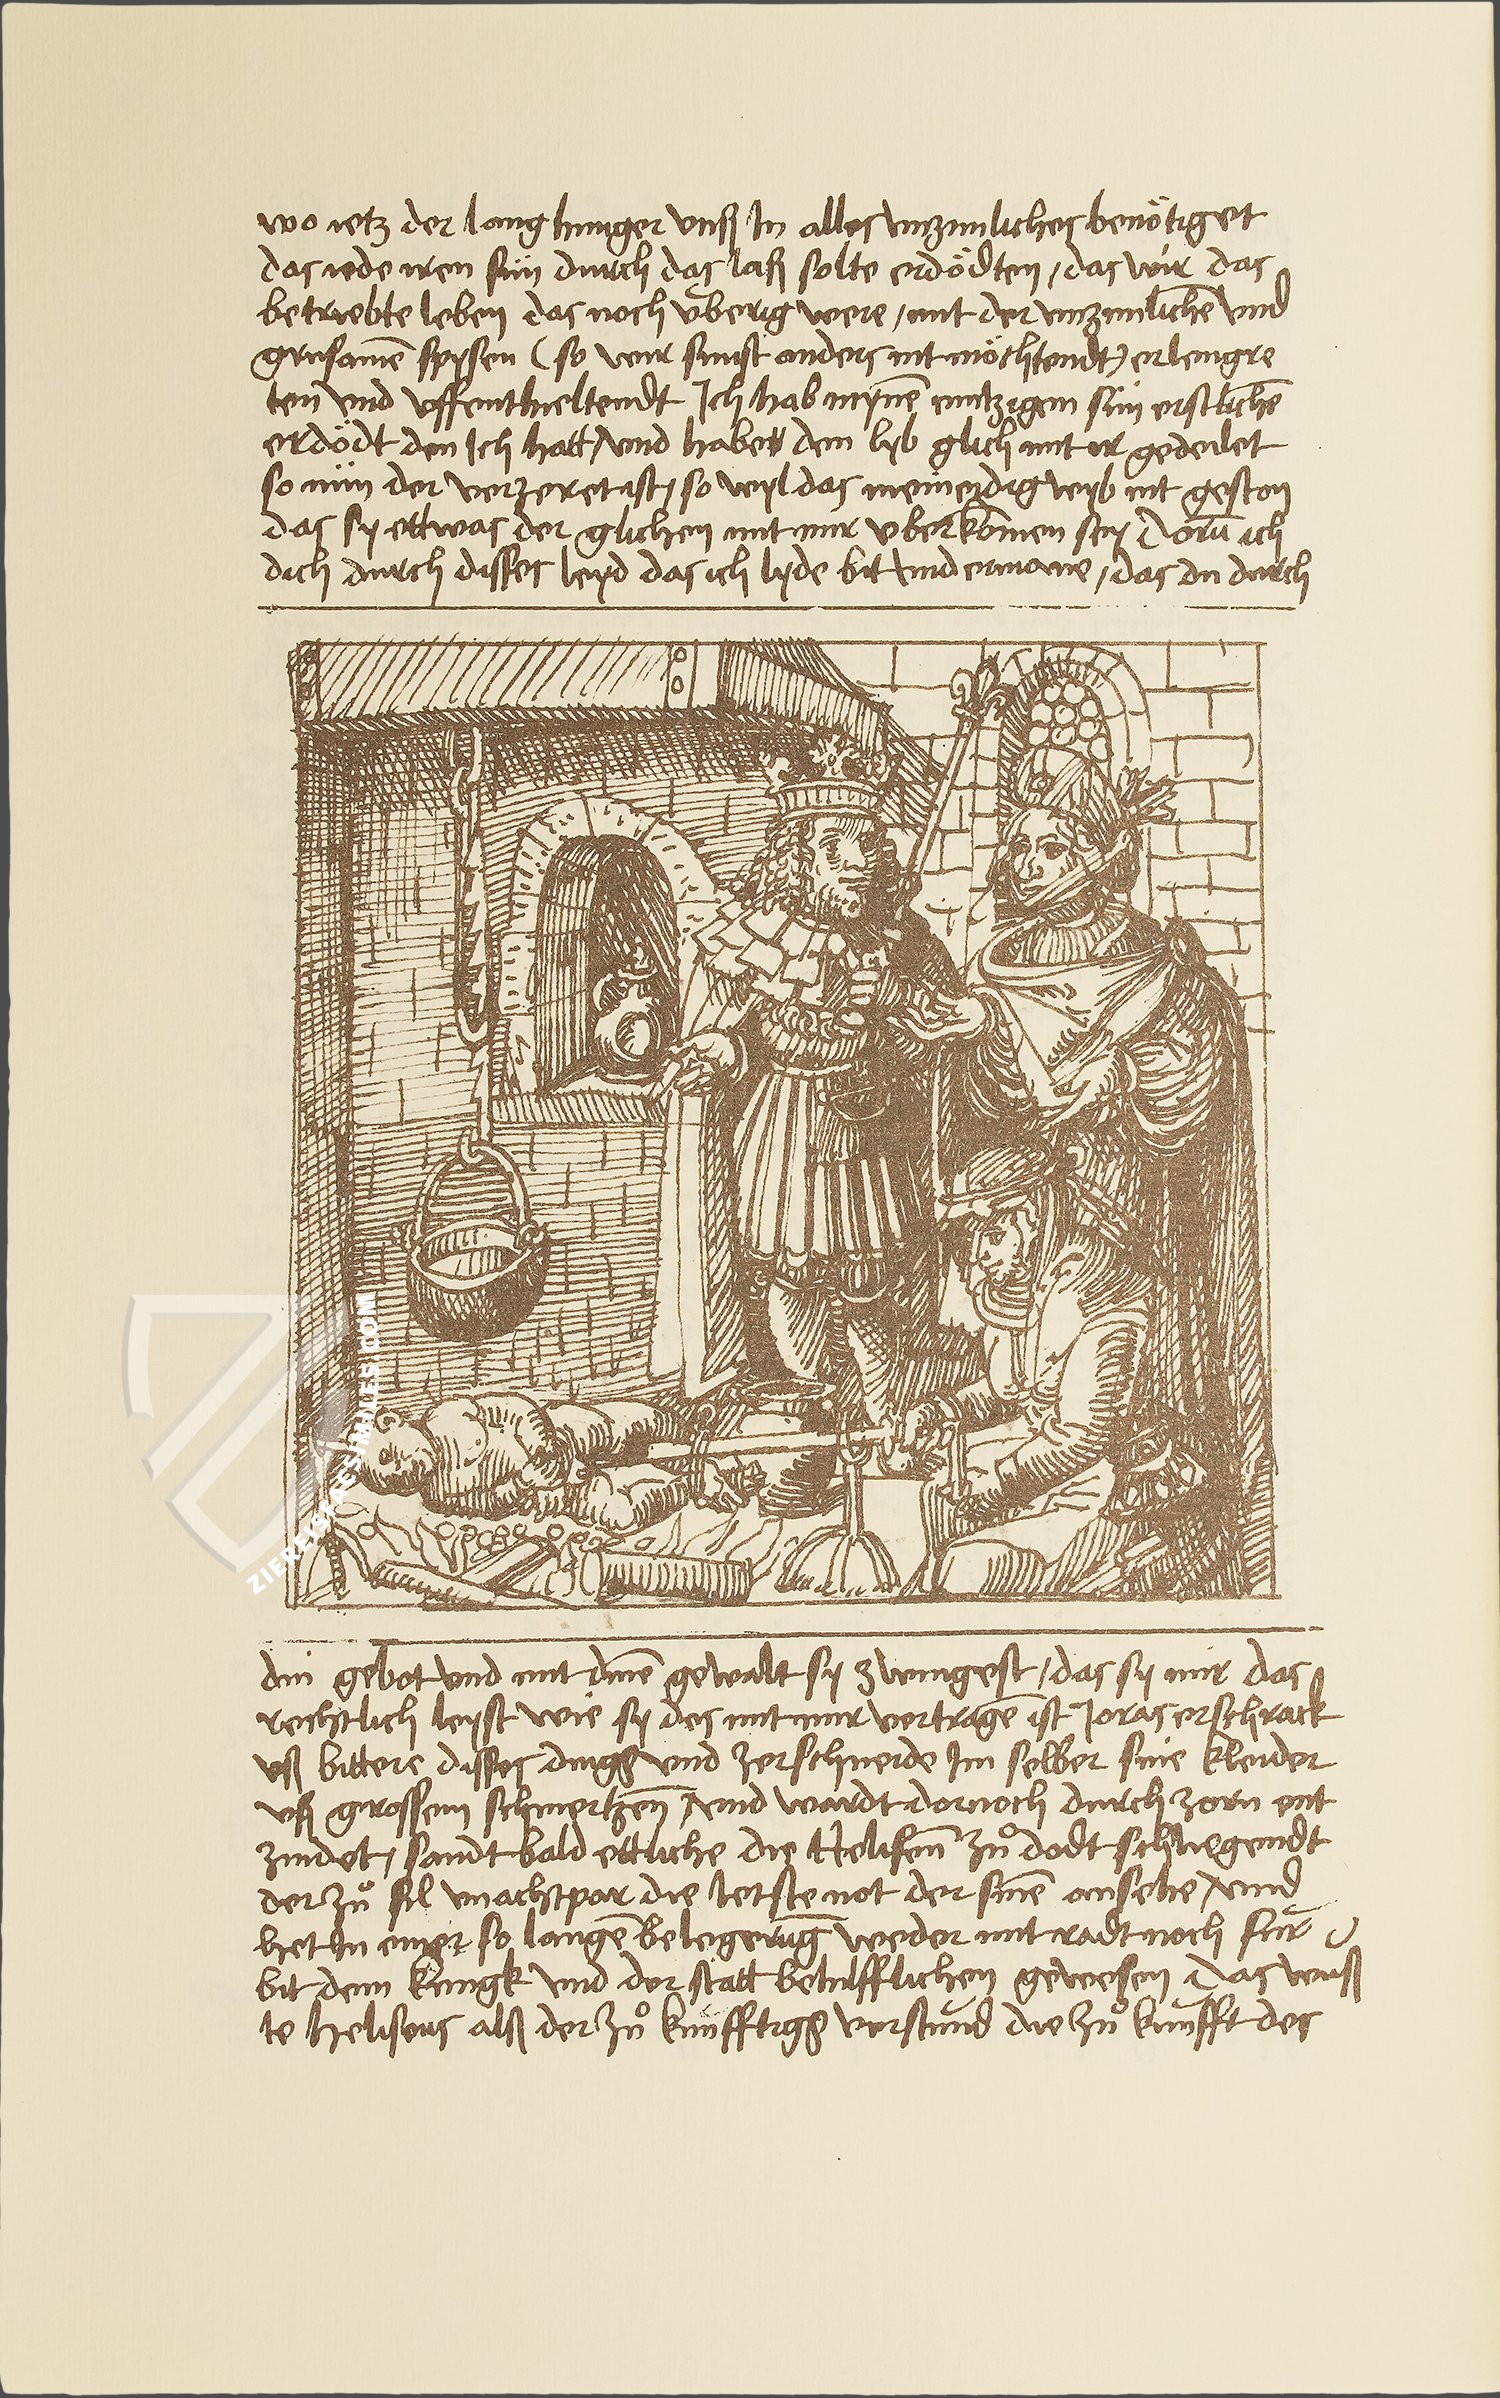 wo ietz der lang hunger vnß In alles vnzimliches benötiget
das iede iren sün durch das laß solte erdödten / das wir das
betriebte leben das noch v̈berig were / mit der vnzimlichē vnd
grusamē spysen ( so wir sunst anders nit möchtendt ) erlengre
ten vnd vffenthieltendt Ich hab mynē eintzigem sün erstlichē
erdödt den Ich hatt / vnd habe dem lyb glich mit ir gedeilet
so nün der verzeret ist / so wyl das meineidig wyb nit geston
das sy ettwas der glichen mit mir v̈berkōmen sey Dorū ich
dich durch disses leyd das ich lyde bit vnd ermane / das du durch
din gebot vnd mit dinē gewalt sy zwingest / das sy mir das
rechtlich leyst wie sy des mit mir vertragē ist Joras erschrack
vß bittere disses dings vnd zerschneide Im selber sine kleider
vß grossem schmertzen / vnd wardt dornoch durch zorn ent
zindet / sandt bald ettliche die Helisēn zů dodt schliegendt
der zů fil vnachtpar die letste not der sinē ansehe / vnd
het In einer so langē belegerūg weder mit radt noch für
bit dem kungk vnd der statt behilfflichen gewesen Das wuß
te Heliseus alß der zů künfftigs verstünd die zů kunfft des
ZIEREIS FACSIMILES.COM